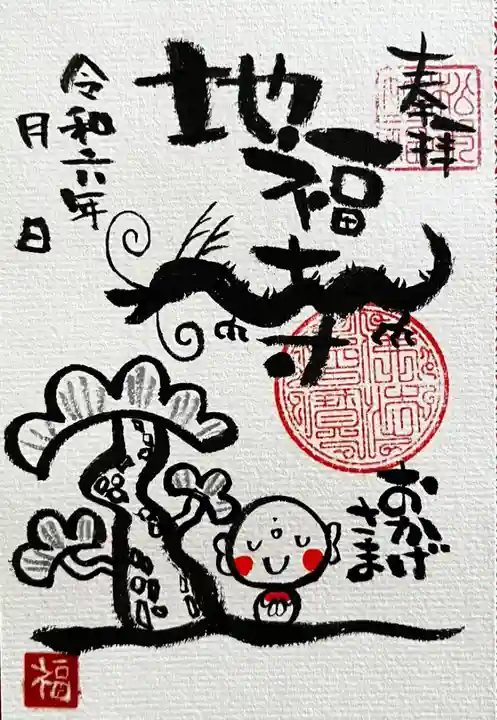 奉拝
地福寺
令和六年
月 日
おかげ
さま
福